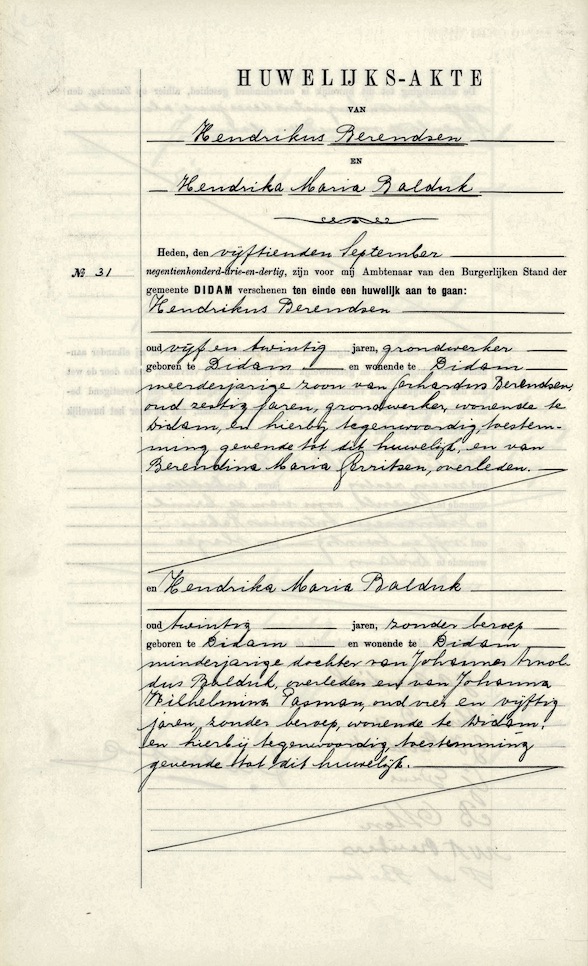 HUWELIJKS-AKTE
VAN
Hendrikus Berendsen
EN
Hendrika Maria Balduk
Heden, den vijftienden September
№ 31
negentienhonderd-drie-en-dertig, zijn voor mij Ambtenaar van den Burgerlijken Stand der
gemeente DIDAM verschenen ten einde een huwelijk aan te gaan:
Hendrikus Berendsen
oud vijf en twintig jaren, grondwerker
geboren te Didam en wonende te Didam
meerderjarige zoon van Gerhardus Berendsen,
oud zestig jaren, grondwerker, wonende te
Didam, en hierbij tegenwoordig, toestem-
ming gevende tot dit huwelijk, en van
Berendina Maria Gerritsen, overleden.
en Hendrika Maria Balduk
oud twintig jaren, zonder beroep
geboren te Didam en wonende te Didam
minderjarige dochter van Johannes Arnol
dus Balduk, overleden en van Johanna
Wilhelmina Pasman, oud vier en vijftig
jaren, zonder beroep, wonende te Didam,
en hierbij tegenwoordig, toestemming
gevende tot dit huwelijk.